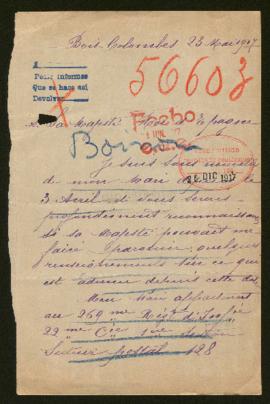 Bois-Colombes 23 Mai 1917
Pedir informes
Que se haga así
Devolver
56603
Sa Majesté Roi d'Espagne
Je suis sans nouvelles
de mon Mari depuis le
3 Avril et vous serais
profondément reconnaissante
si sa Majesté pouvait me
faire parvenir quelques
renseignements sur ce qui
est advenu depuis cette date
26 DIC 1917
Mon Mari appartenait
au 269 me Régt d'Infie
22 me Cie
Secteur postal 128